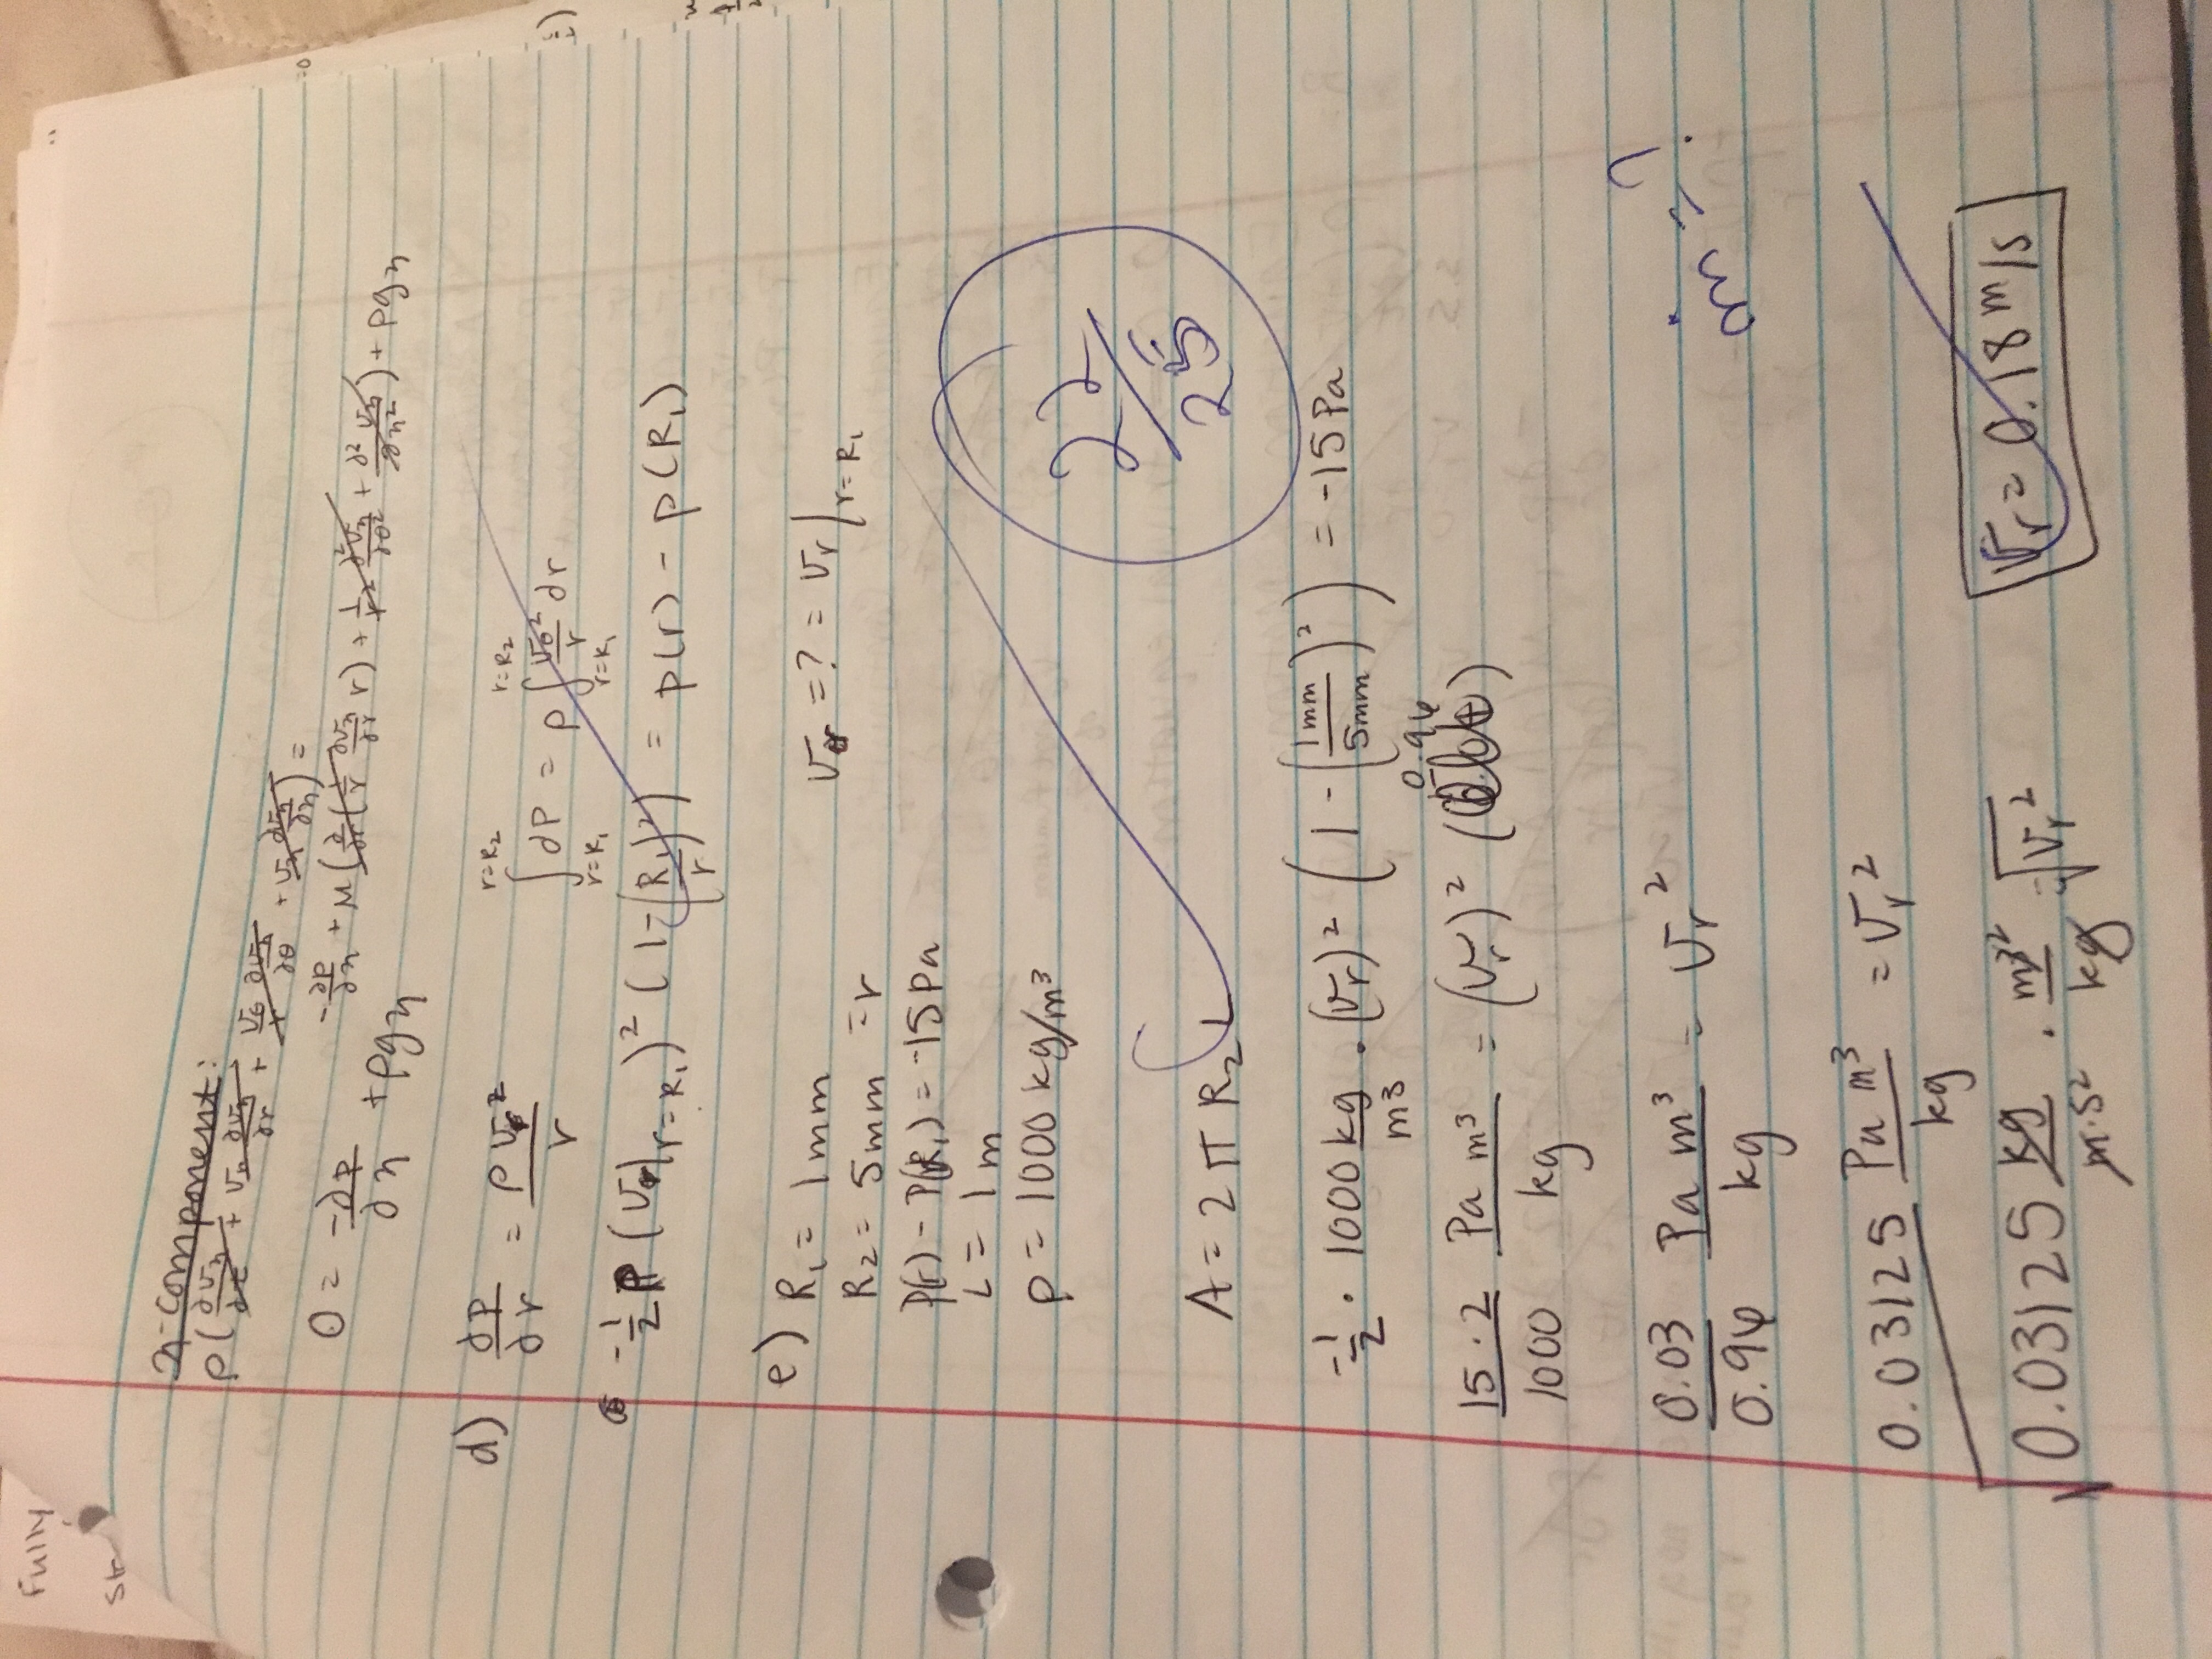 Fully
Str
x-component:
ρ(∂vₓ/∂t + vᵣ ∂vₓ/∂r + vθ/r ∂vₓ/∂θ + vₓ ∂vₓ/∂x) =
-∂p/∂x + μ(∂/∂r(1/r ∂vₓ/∂r r) + 1/r² ∂²vₓ/∂θ² + ∂²vₓ/∂x²) + ρgₓ
0 = -∂p/∂x + ρgₓ
d) ∂p/∂r = ρvᵣ²/r ∫_{r=R₁}^{r=R₂} dP = ρ ∫_{r=R₁}^{r=R₂} vθ²/r dr
-1/2 ρ (vᵣ|r=R₁)² (1-(R₁/r)²) = p(r) - p(R₁)
e) R₁ = 1mm vᵣ = ? = vᵣ|r=R₁
R₂ = 5mm = r
P(r) - P(R₁) = -15 Pa
L = 1m
ρ = 1000 kg/m³
22/25
A = 2πR₂L
-1/2 · 1000 kg/m³ · (vᵣ)² (1 - (1mm/5mm)²) = -15 Pa
15·2/1000 Pa m³/kg = (vᵣ)² (0.96)
0.03/0.96 Pa m³/kg = vᵣ²
ṁ = ?
0.03125 Pa m³/kg = vᵣ²
√(0.03125 kg/m·s² · m³²/kg) = √vᵣ² vᵣ = 0.18 m/s